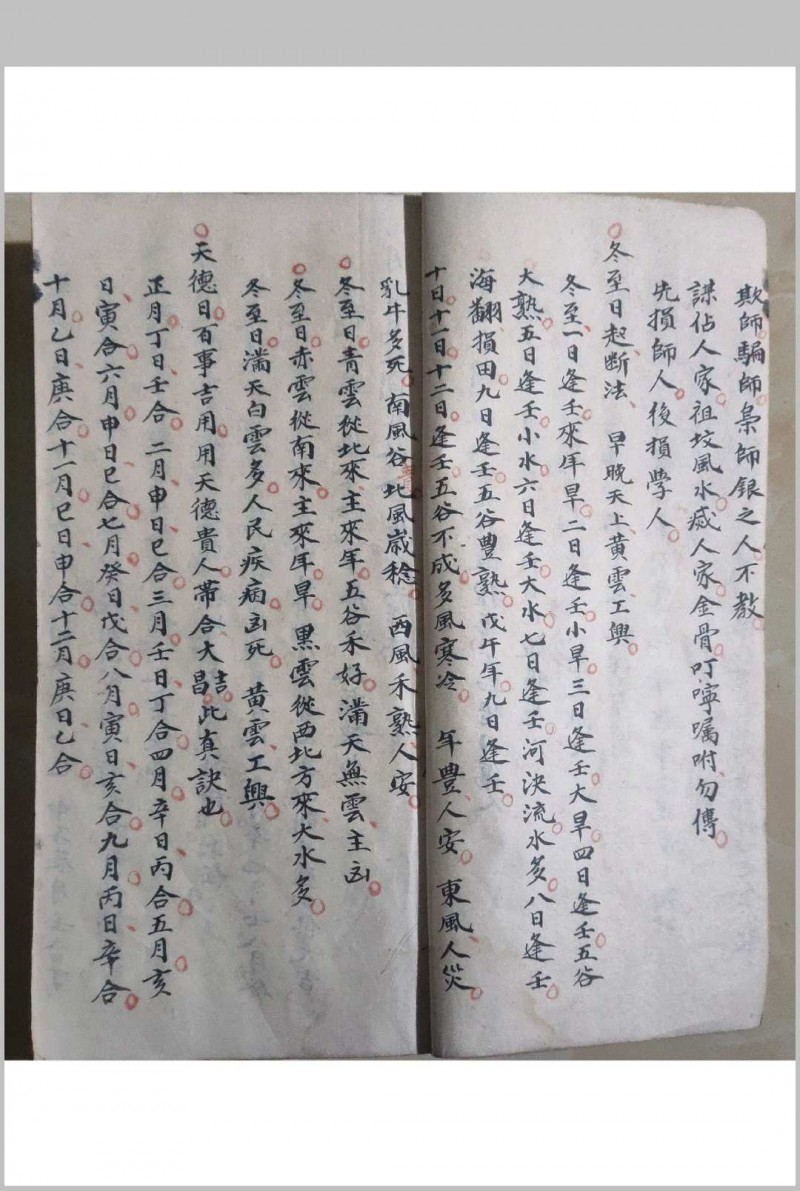 欺師騙師梟師銀之人不教
謀佔人家祖坟風水滅人家金骨叮嚀嘱咐勿傳
先損師人後損學人
冬至日起断法 早晚天上黄雲工興
冬至一日逢壬來年旱二日逢壬小旱三日逢壬大旱四日逢壬五谷
大熟五日逢壬小水六日逢壬大水七日逢壬河決流水多八日逢壬
海翻損田九日逢壬五谷豊熟戊午年九日逢壬
十日十一日十二日逢壬五谷不成多風寒冷 年豊人安 東風人災
乳牛多死南風谷北風歳稔 西風禾熟人安
冬至日青雲從北來主來年五谷禾好滿天無雲主凶
冬至日赤雲從南來主來年旱 黑雲從西北方來大水多
冬至日滿天白雲多人民疾病凶死 黄雲工興
天德日百事吉用用天德貴人帶合大吉昌此真訣也
正月丁日壬合 二月申日巳合三月壬日丁合四月辛日丙合五月亥
日寅合六月甲日巳合七月癸日戊合八月寅日亥合九月丙日辛合
十月乙日庚合十一月巳日申合十二月庚日乙合